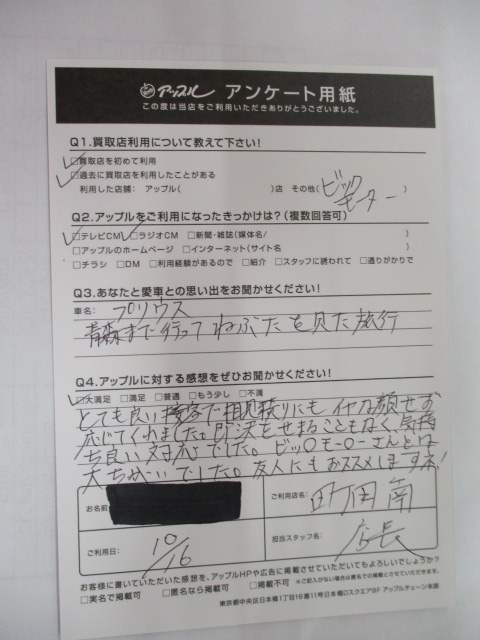 アップル アンケート用紙
この度は当店をご利用いただきありがとうございました。
Q1.買取店利用について教えて下さい!
□買取店を初めて利用
□過去に買取店を利用したことがある
利用した店舗: アップル( )店 その他( ビックモーター )
Q2.アップルをご利用になったきっかけは?(複数回答可)
□テレビCM □ラジオCM □新聞・雑誌(媒体名/ )
□アップルのホームページ □インターネット(サイト名 )
□チラシ □DM □利用経験があるので □紹介 □スタッフに誘われて □通りがかりで
Q3.あなたと愛車との思い出をお聞かせください!
車名: プリウス
青森まで行ってねぶたを見た旅行
Q4.アップルに対する感想をぜひお聞かせください!
□大満足 □満足 □普通 □もう少し □不満
とても良い接客で相見積りにもイヤな顔せず
応じてくれました。即決をせまることもなく、気持
ち良い対応でした。ビッ〇モー〇ーさんとは
大ちがいでした。友人にもおススメしますネ!
お名前
ご利用店名: 町田南
ご利用日: 10/16
担当スタッフ名: 店長
お客様に書いていただいた感想を、アップルHPや広告に掲載させていただいてもよろしいでしょうか?
□実名で掲載可 □匿名なら掲載可 □掲載不可 ※ご記入がない場合は匿名での掲載とさせていただきます。
東京都中央区日本橋1丁目16番11号日本橋Dスクエア8F アップルチェーン本部